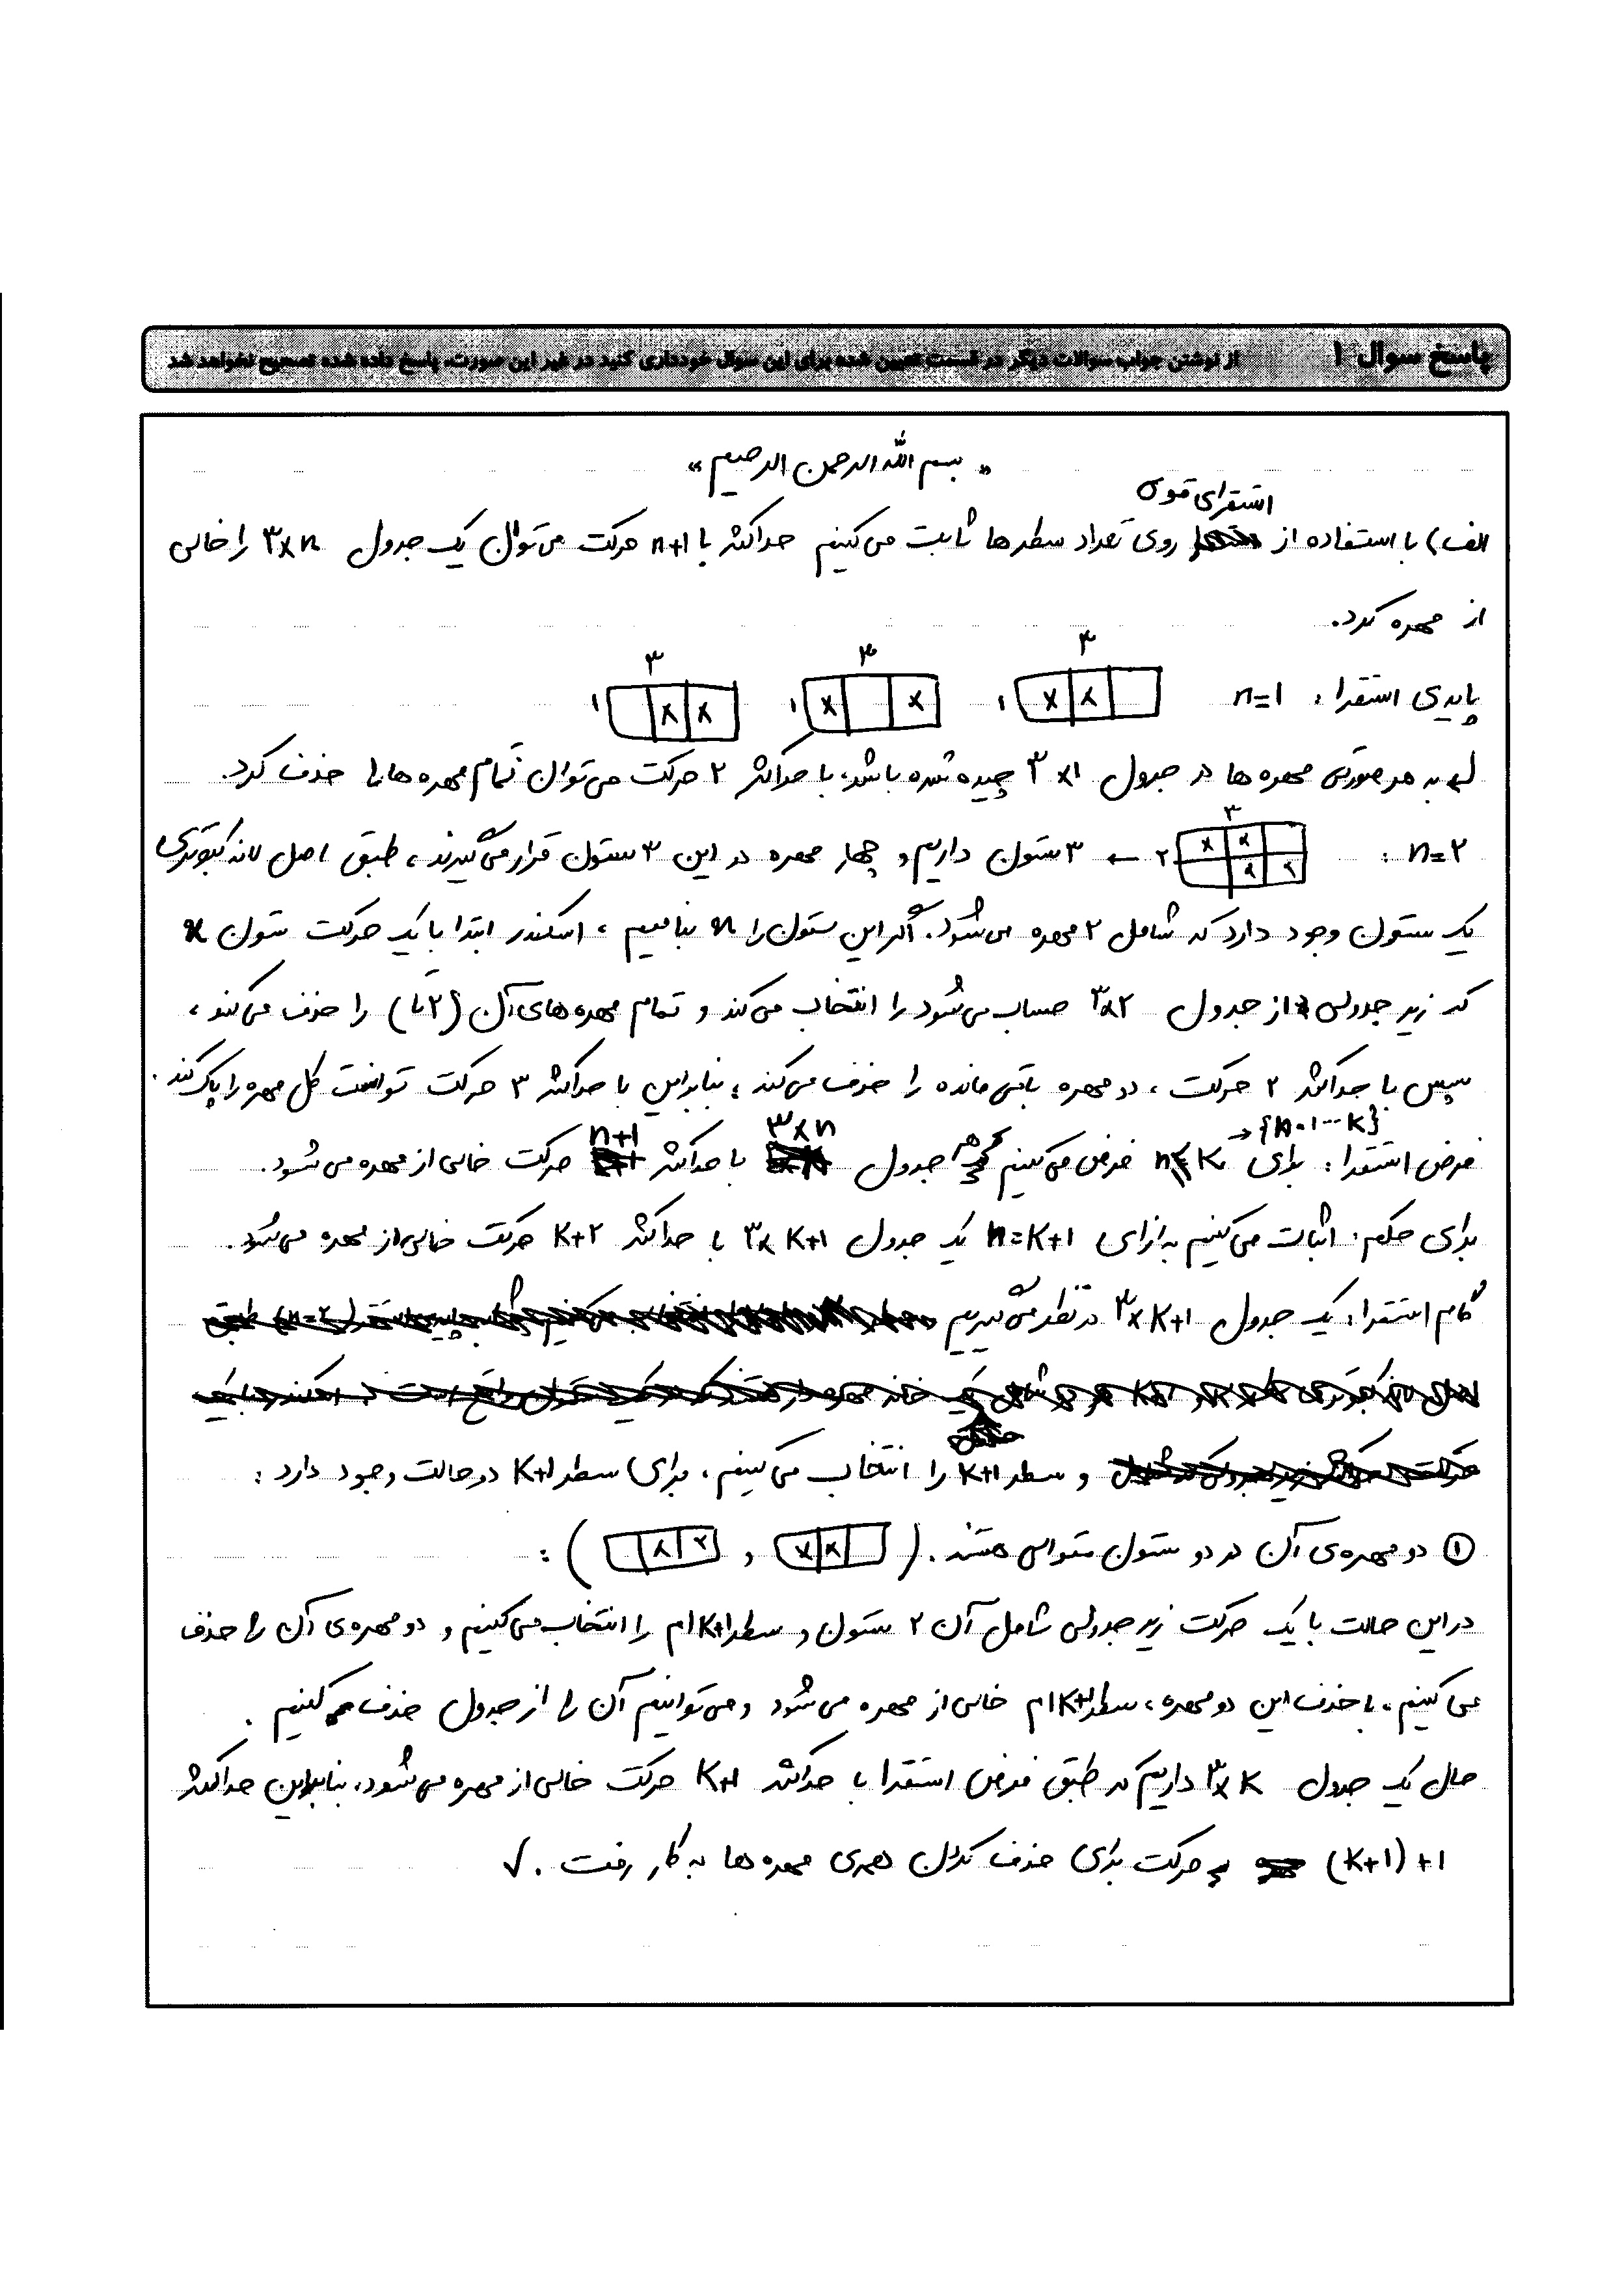 پاسخ سوال ۱
از نوشتن جواب سوالات دیگر در قسمت تعیین شده برای این سوال خودداری کنید در غیر این صورت، پاسخ داده شده تصحیح نخواهد شد
« بسم الله الرحمن الرحیم »
استقرای قوی
الف) با استفاده از روی تعداد سطرها ثابت می‌کنیم حداکثر با n+1 حرکت می‌توان یک جدول ۳×n را خالی
از مهره کرد.
۳ ۳ ۳
پایه‌ی استقرا: n=1 ۱ x x ۱ x x ۱ x x
به هر صورتی مهره ها در جدول ۳×۱ چیده شده باشد، با حداکثر ۲ حرکت می‌توان تمام مهره ها را حذف کرد.
۳
n=۲ : ۲ ← ۳ ستون داریم و چهار مهره در این ۳ ستون قرار می‌گیرند، طبق اصل لانه کبوتری
یک ستون وجود دارد که شامل ۲ مهره می‌شود. اگر این ستون را x بنامیم، اسکندر ابتدا با یک حرکت ستون x
که زیر جدولی از جدول ۳×۲ حساب می‌شود را انتخاب می‌کند و تمام مهره های آن (۲ تا) را حذف می‌کند،
سپس با حداکثر ۲ حرکت، دو مهره باقی مانده را حذف می‌کند؛ بنابراین با حداکثر ۳ حرکت توانست کل مهره را پاک کند.
فرض استقرا: برای n≤K فرض می‌کنیم هر جدول ۳×n با حداکثر n+1 حرکت خالی از مهره می شود.
برای حکم: اثبات می‌کنیم به ازای n=K+1 یک جدول ۳×K+1 با حداکثر K+۲ حرکت خالی از مهره می‌شود.
گام استقرا: یک جدول ۳×K+1 در نظر می‌گیریم
و سطر K+1 را انتخاب می‌کنیم، برای سطر K+1 دو حالت وجود دارد:
① دو مهره‌ی آن در دو ستون متوالی هستند. ( x x , x x ) :
در این حالت با یک حرکت زیر جدولی شامل آن ۲ ستون و سطر K+1 ام را انتخاب می‌کنیم و دو مهره‌ی آن را حذف
می کنیم، با حذف این دو مهره، سطر K+1 ام خالی از مهره می شود و می‌توانیم آن را از جدول حذف کنیم.
حال یک جدول ۳×K داریم که طبق فرض استقرا با حداکثر K+1 حرکت خالی از مهره می‌شود. بنابراین حداکثر
(K+1)+1 حرکت برای حذف کردن همه‌ی مهره ها به کار رفت. ✓